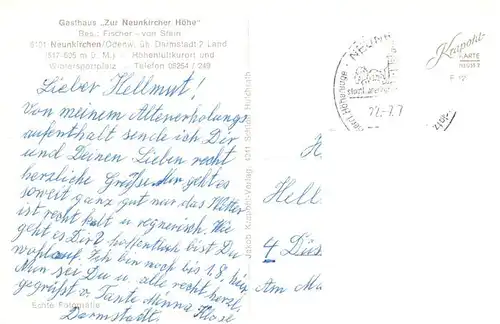 Gasthaus „Zur Neunkircher Höhe"
Bes.: Fischer - von Stein
6101 Neunkirchen/Odenw. üb. Darmstadt 2 Land
(517-605 m ü. M.) - Höhenluftkurort und
Wintersportplatz - Telefon 06254 / 249
Lieber Hellmut!
Von meinem Altenerholungs
aufenthalt sende ich Dir
und Deinen Lieben recht
herzliche Grüße. Mir geht es
soweit ganz gut nur das Wetter
ist recht kalt u regnerisch. Wie
geht es Dir? hoffentlich bist Du
wohlauf. Ich bin noch bis 1.8. hier
Nun sei Du u. alle recht herzl.
gegrüßt v. Tante Minna Klose
Darmstadt.
Echte Fotografie
Jakob Krapohl-Verlag, 4041 Schloß Hülchrath
22.-7.7
Krapohl
KARTE
Hell
4 Düs
Am Ma